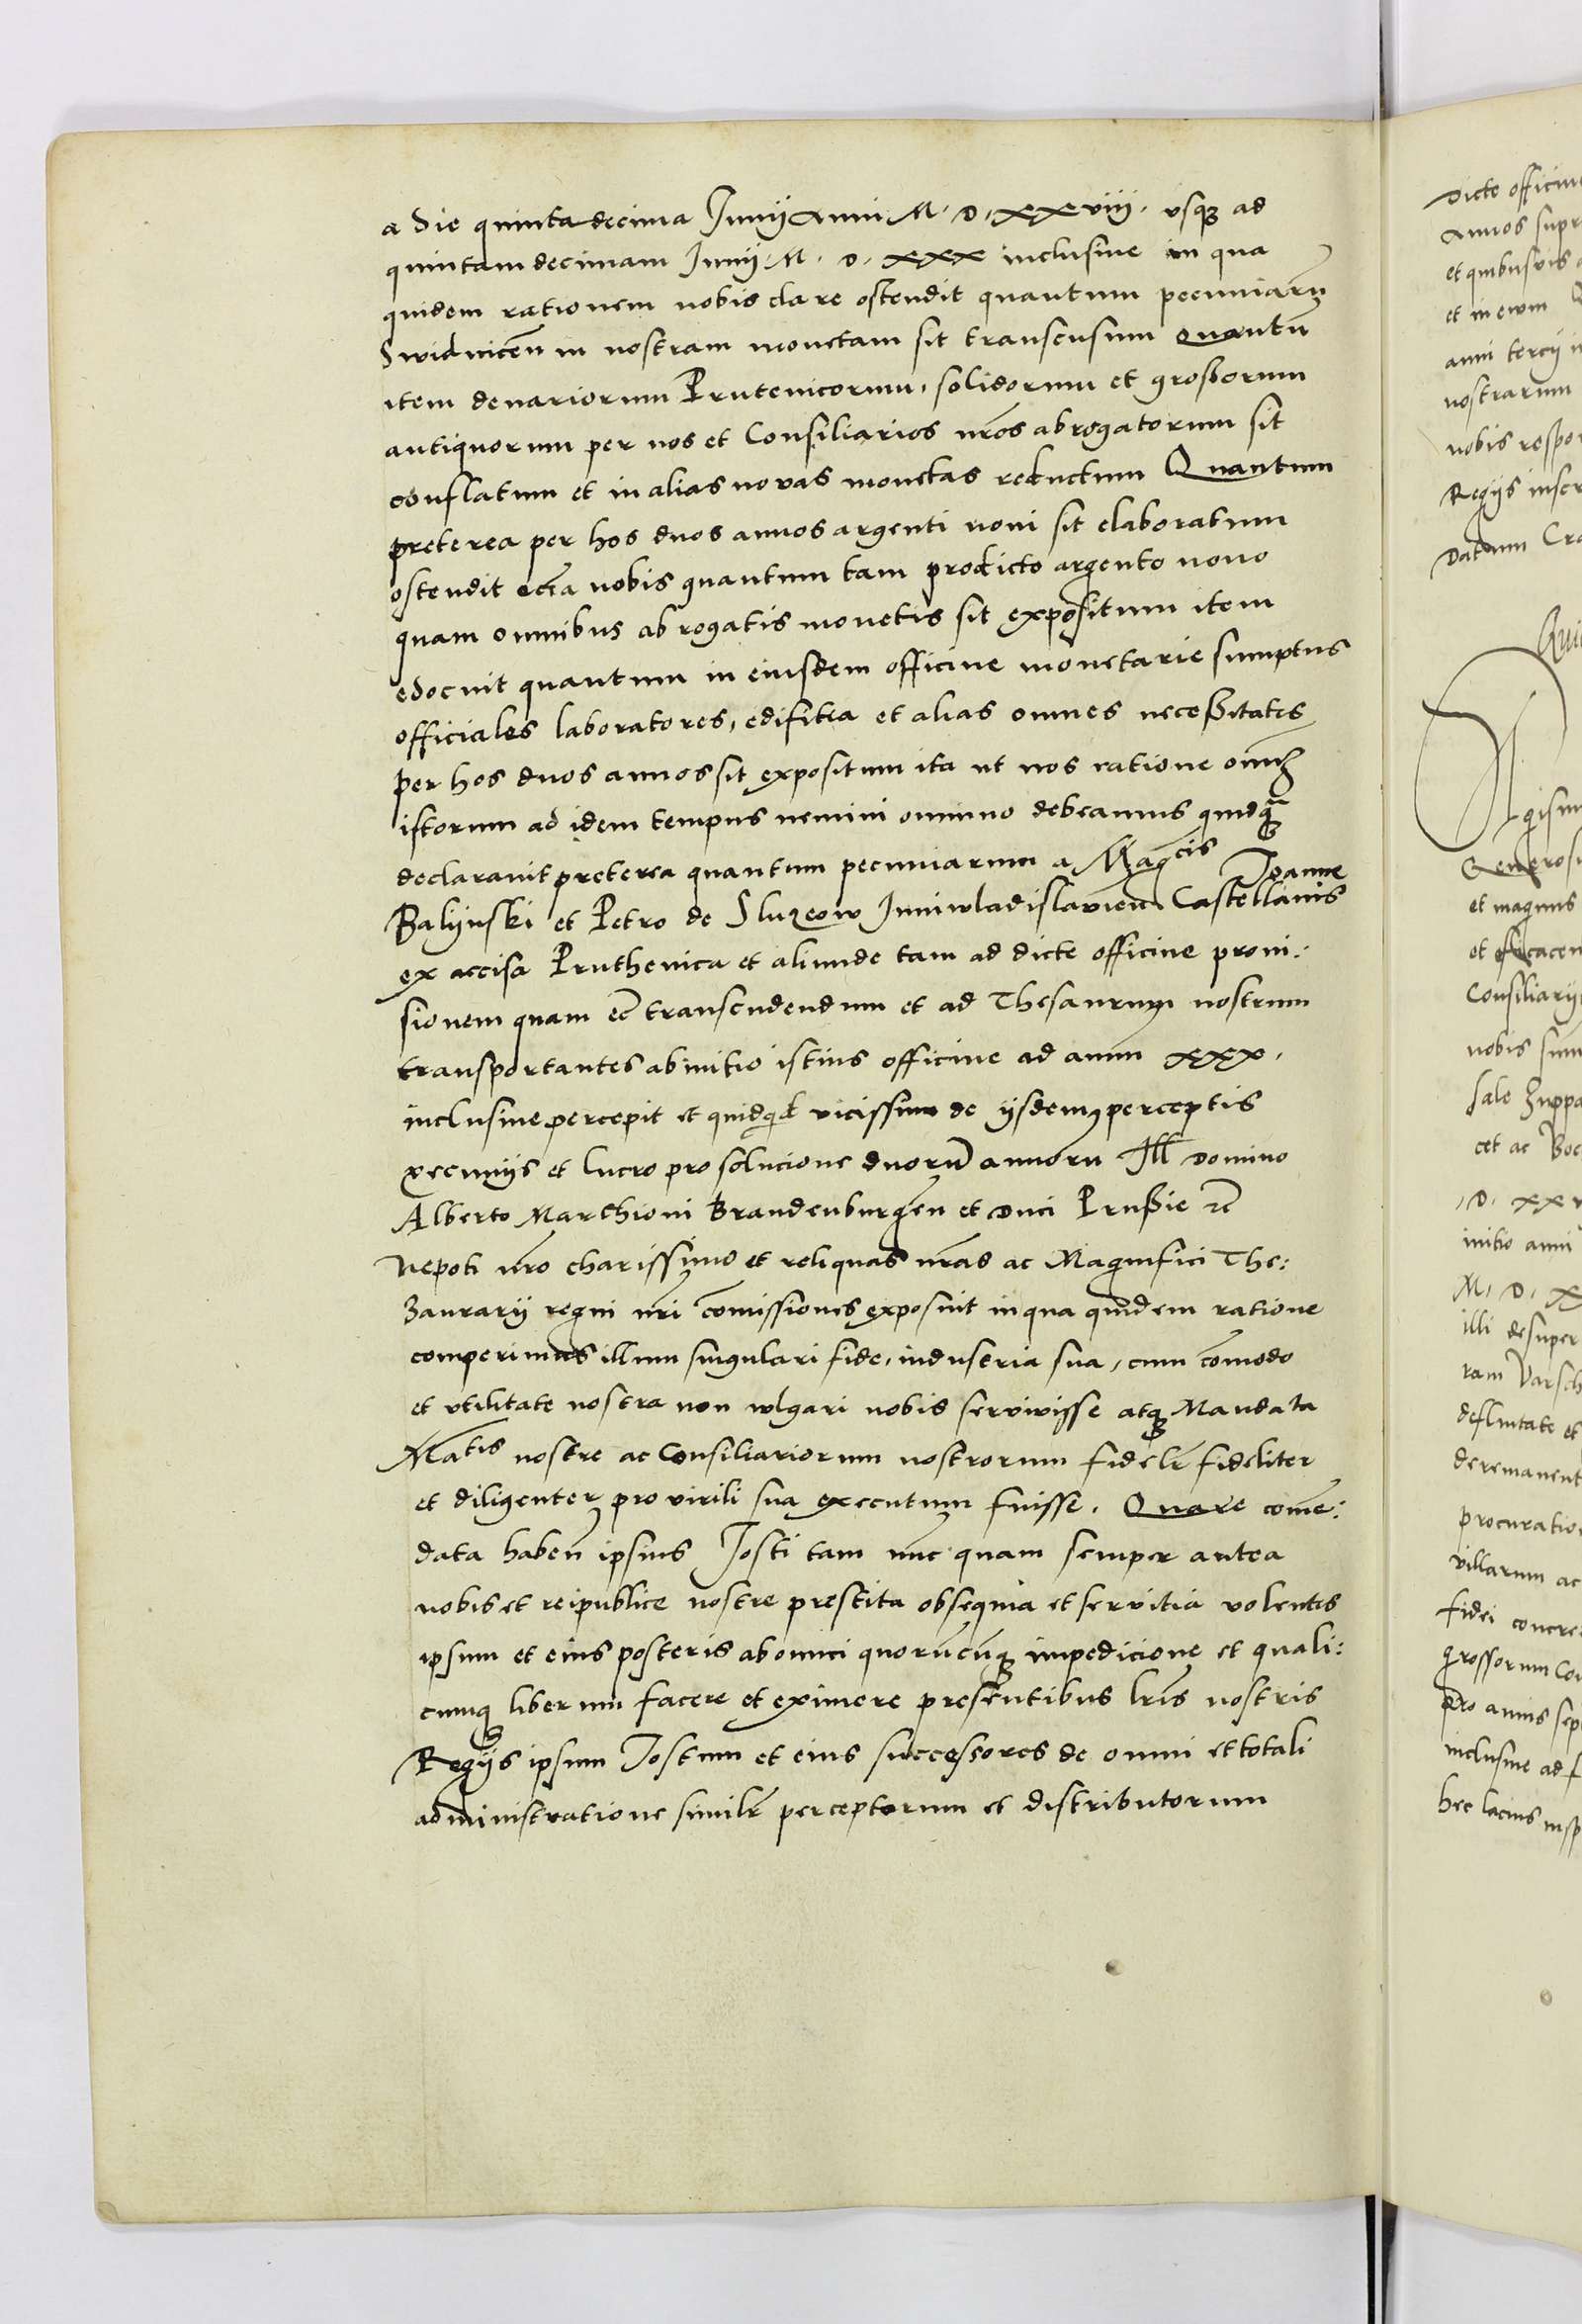 a die quinta decima Junij Anni M. D. XXVIII. vsque ad
quintam decimam Junij. M. D. XXX inclusiue in qua
quidem rationem nobis clare ostendit quantum pecuniarum
Swidnicen̄ in nostram monetam sit transcusum Quantū
item denariorum Prutenicorum, solidorum et großorum
antiquorum per nos et Consiliarios nr̄os abrogatorum sit
conflatum et in alias novas monetas reductum Quantum
preterea per hos duos annos argenti noui sit elaboratum
ostendit eciā nobis quantum tam predicto argento nouo
quam omnibus abrogatis monetis sit expositum item
edocuit quantum in eiusdem officine monetarie sumptus
officiales laboratores, edifitia et alias omnes neceßitates
per hos duos annos sit expositum ita ut nos ratione omnī
istorum ad idem tempus nemini omnino debeamus quidq̄
declarauit preterea quantum pecuniarum a Magcis Joanne
Balijnski et Petro de Sluzeow Juniwladislauien̄ Castellanis
ex accisa Pruthenica et aliunde tam ad dicte officine proui:
sionem quam ec̄ transcudendum et ad Thesaurum nostrum
transportantes ab initio istius officine ad annū XXX.
inclusiue percepit et quidquid vicissim de ijsdem perceptis
pecunijs et lucro pro solucione duorū annoru Ill Domino
Alberto Marchioni Brandenburgen̄ et Duci Prußie zc
Nepoti nr̄o charissimo et reliquas nr̄as ac Magnifici The:
zaurarij regni nr̄i com̄issiones exposuit in qua quidem ratione
comperimus illum singulari fide, industria sua, cum com̄odo
et vtilitate nostra non wlgari nobis servivisse atque Mandata
Matis nostre ac Consiliariorum nostrorum fidelr̄ fideliter
et diligenter pro virili sua executum fuisse. Quare com̄e:
data haben̄ ipsius Josti tam nūc quam semper antea
nobis et reipublice nostre prestita obsequia et servitia volentes
ipsum et eius posteris ab omni quorūcūque impedicione et quali:
cumque liberum facere et eximere presentibus lr̄is nostris
Regijs ipsum Jostum et eius successores de omni et totali
administratione similr̄ perceptorum et distributorum
Dicte officin
Annos supr
et quibusvis
et in eum
anni tercij
nostrarum
nobis respo
Regijs inser
Datum Cra
Generos
et magnis
et efficacem
Consiliarij
nobis sum
sale Zuppa
cet ac Boc
. D. XXV
initio anni
M. D. X
illi desuper
ram Varsch
procuratio
villarum ac
fidei concre
grossorum Co
pro annis sep
inclusiue ad
hec lacius insp